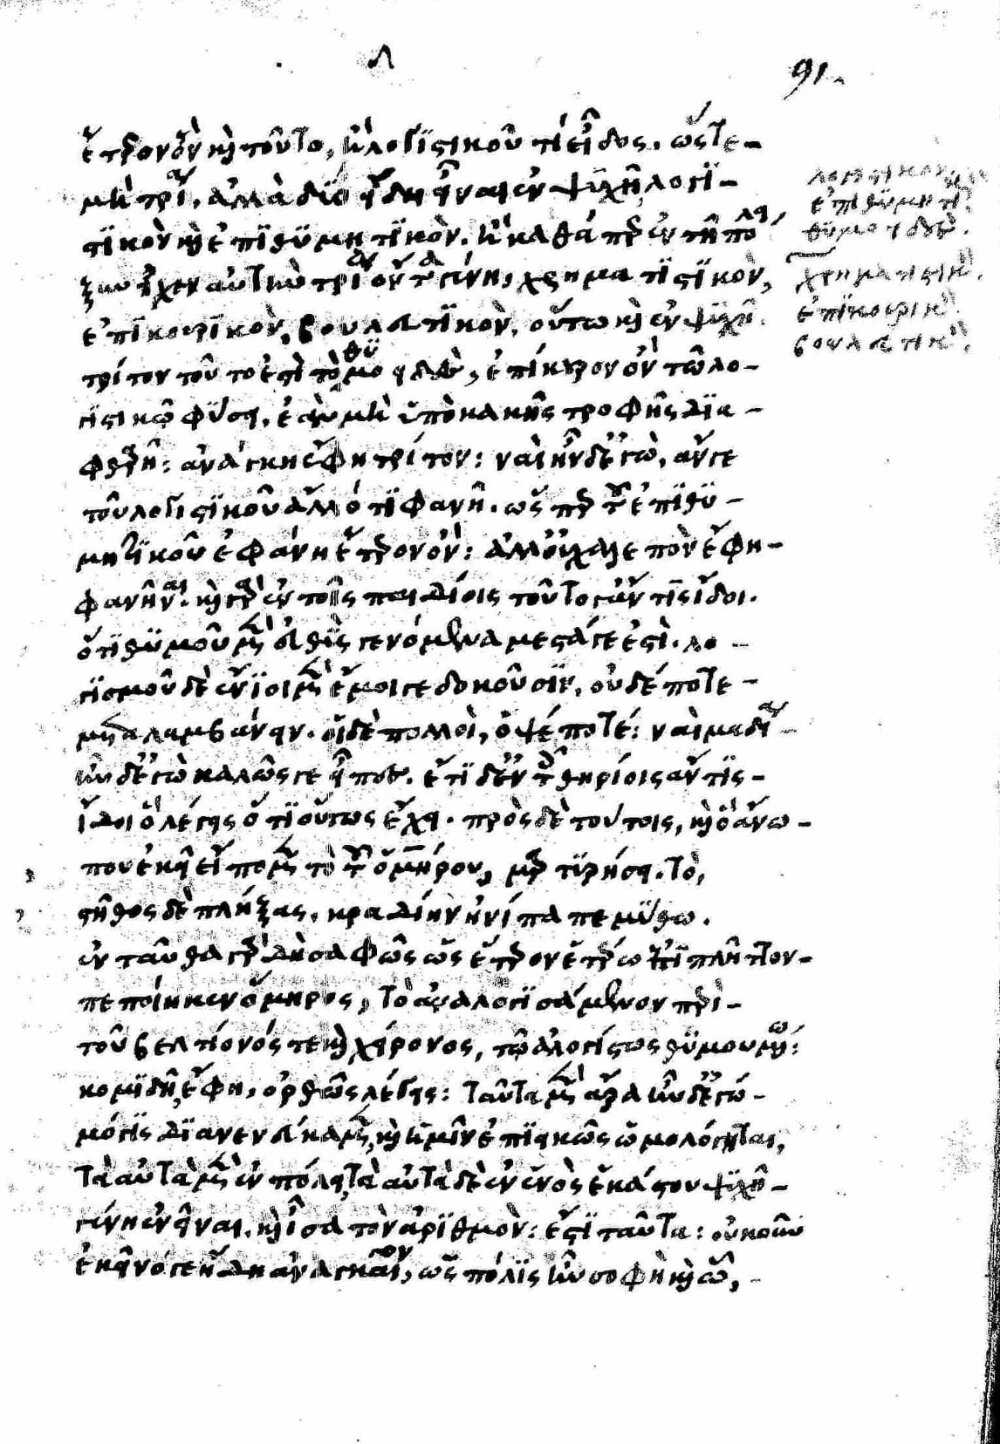 λ
91.
ἕτερον ὂν καὶ τοῦτο, ἢ λογιστικοῦ τὶ εἶδος. ὥστε
μὴ τρία, ἀλλὰ δύο εἴδη εἶναι ἐν ψυχῇ, λογι-
στικὸν καὶ ἐπιθυμητικόν. ἢ καθάπερ ἐν τῇ πόλει,
ξυνεῖχεν αὐτὴν τρία ὄντα γένη, χρηματιστικὸν,
ἐπικουρικὸν, βουλευτικὸν, οὕτω καὶ ἐν ψυχῇ
τρίτον τοῦτο ἐστὶ τὸ θυμοειδὲς, ἐπίκουρον ὂν τῷ λο-
γιστικῷ φύσει, ἐὰν μὴ ὑπὸ κακῆς τροφῆς δια-
φθαρῇ: ἀνάγκη ἔφη τρίτον: ναὶ ἦν δ' ἐγὼ, ἄν γε
τοῦ λογιστικοῦ ἄλλό τι φανῇ. ὥσπερ τοῦ ἐπιθυ-
μητικοῦ ἐφάνη ἕτερον ὄν: ἀλλ' οὐ χαλεπὸν ἔφη
φανῆναι. καὶ γὰρ ἐν τοῖς παιδίοις τοῦτο γ' ἄν τις ἴδοι.
ὅτι θυμοῦ μὲν εὐθὺς γενόμενα μεστά γε ἐστὶ. λο-
γισμοῦ δὲ ἔνιοι μὲν ἔμοιγε δοκοῦσιν, οὐδέποτε
μεταλαμβάνειν. οἱ δὲ πολλοὶ, ὀψέ ποτέ: ναὶ μὰ δί'
ἦν δ' ἐγὼ καλῶς γε εἶπες. ἔτι δὲ ἐν τοῖς θηρίοις ἄν τις
ἴδοι ὃ λέγεις ὅτι οὕτως ἔχει. πρὸς δὲ τούτοις, καὶ ὃ ἄνω
που ἐκεῖ εἴπομεν τὸ τοῦ ὁμήρου, μαρτυρήσει. τὸ,
στῆθος δὲ πλήξας, κραδίην ἠνίπαπε μύθῳ.
ἐνταῦθα γὰρ δὴ σαφῶς ὡς ἕτερον ἑτέρῳ ἐπιπλῆττον
πεποίηκεν ὅμηρος, τὸ ἀναλογισάμενον περὶ
τοῦ βελτίονός τε καὶ χείρονος, τῷ ἀλογίστως θυμουμένῳ:
κομιδῇ ἔφη, ὀρθῶς λέγεις: ταῦτα μὲν ἄρα ἦν δ' ἐγώ
μόγις διανενεύκαμεν, καὶ ἡμῖν ἐπιεικῶς ὡμολόγηται,
τὰ αὐτὰ μὲν ἐν πόλει, τὰ αὐτὰ δὲ ἐν ἑνὸς ἑκάστου ψυχῇ
γένη ἐνεῖναι, καὶ ἴσα τὸν ἀριθμόν: ἔστι ταῦτα: οὐκοῦν
ἐκεῖνό γε ἤδη ἀναγκαῖον, ὡς πόλις ἦν σοφὴ καὶ ᾧ,
λογιστικὸν
ἐπιθυμητικ.
θυμοειδὲς.
χρηματιστικ.
ἐπικουρικ.
βουλευτικ.